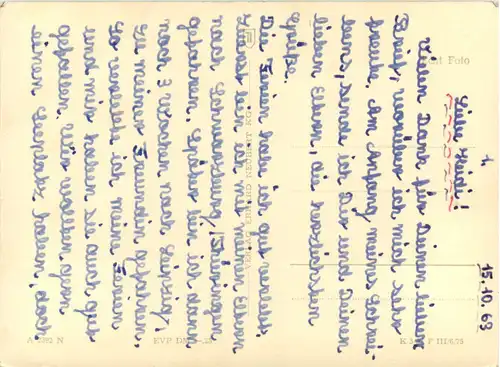 15.10.68
Liebe Heidi!
Vielen Dank für Deinen lieben
Brief, worüber ich mich sehr
freute. Am Anfang meines Schrei-
bens, sende ich Dir und Deinen
lieben Eltern, die herzlichsten
Grüße.
Die Ferien habe ich gut verlebt.
Zuerst bin ich mit meinen Eltern
nach Schwarzburg/Thüringen
gefahren. Später bin ich dann
noch 3 Wochen nach Leipzig,
zu meiner Freundin gefahren.
So verlebte ich meine Ferien
und mir haben sie auch gut
gefallen. Wir wollten gern
einen haben, dort
Echt Foto
VERLAG ERHARD NEUBERT KG
N
EVP DM
F III/6/75